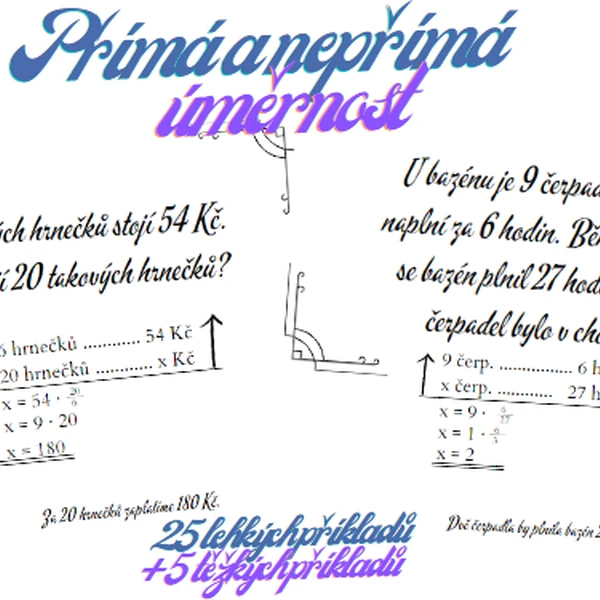 Přímá a nepřímá
úměrnost
ých hrnečků stojí 54 Kč.
í 20 takových hrnečků?
6 hrnečků ............ 54 Kč
20 hrnečků ............ x Kč
x = 54 · 20/6
x = 9 · 20
x = 180
Za 20 hrnečků zaplatíme 180 Kč.
U bazénu je 9 čerpad
naplní za 6 hodin. Bě
se bazén plnil 27 hod
čerpadel bylo v cho
9 čerp. ............... 6 h
x čerp. ............ 27 h
x = 9 · 6/27
x = 1 · 6/3
x = 2
Dvě čerpadla by plnila bazén 2
25 lehkých příkladů
+5 těžkých příkladů